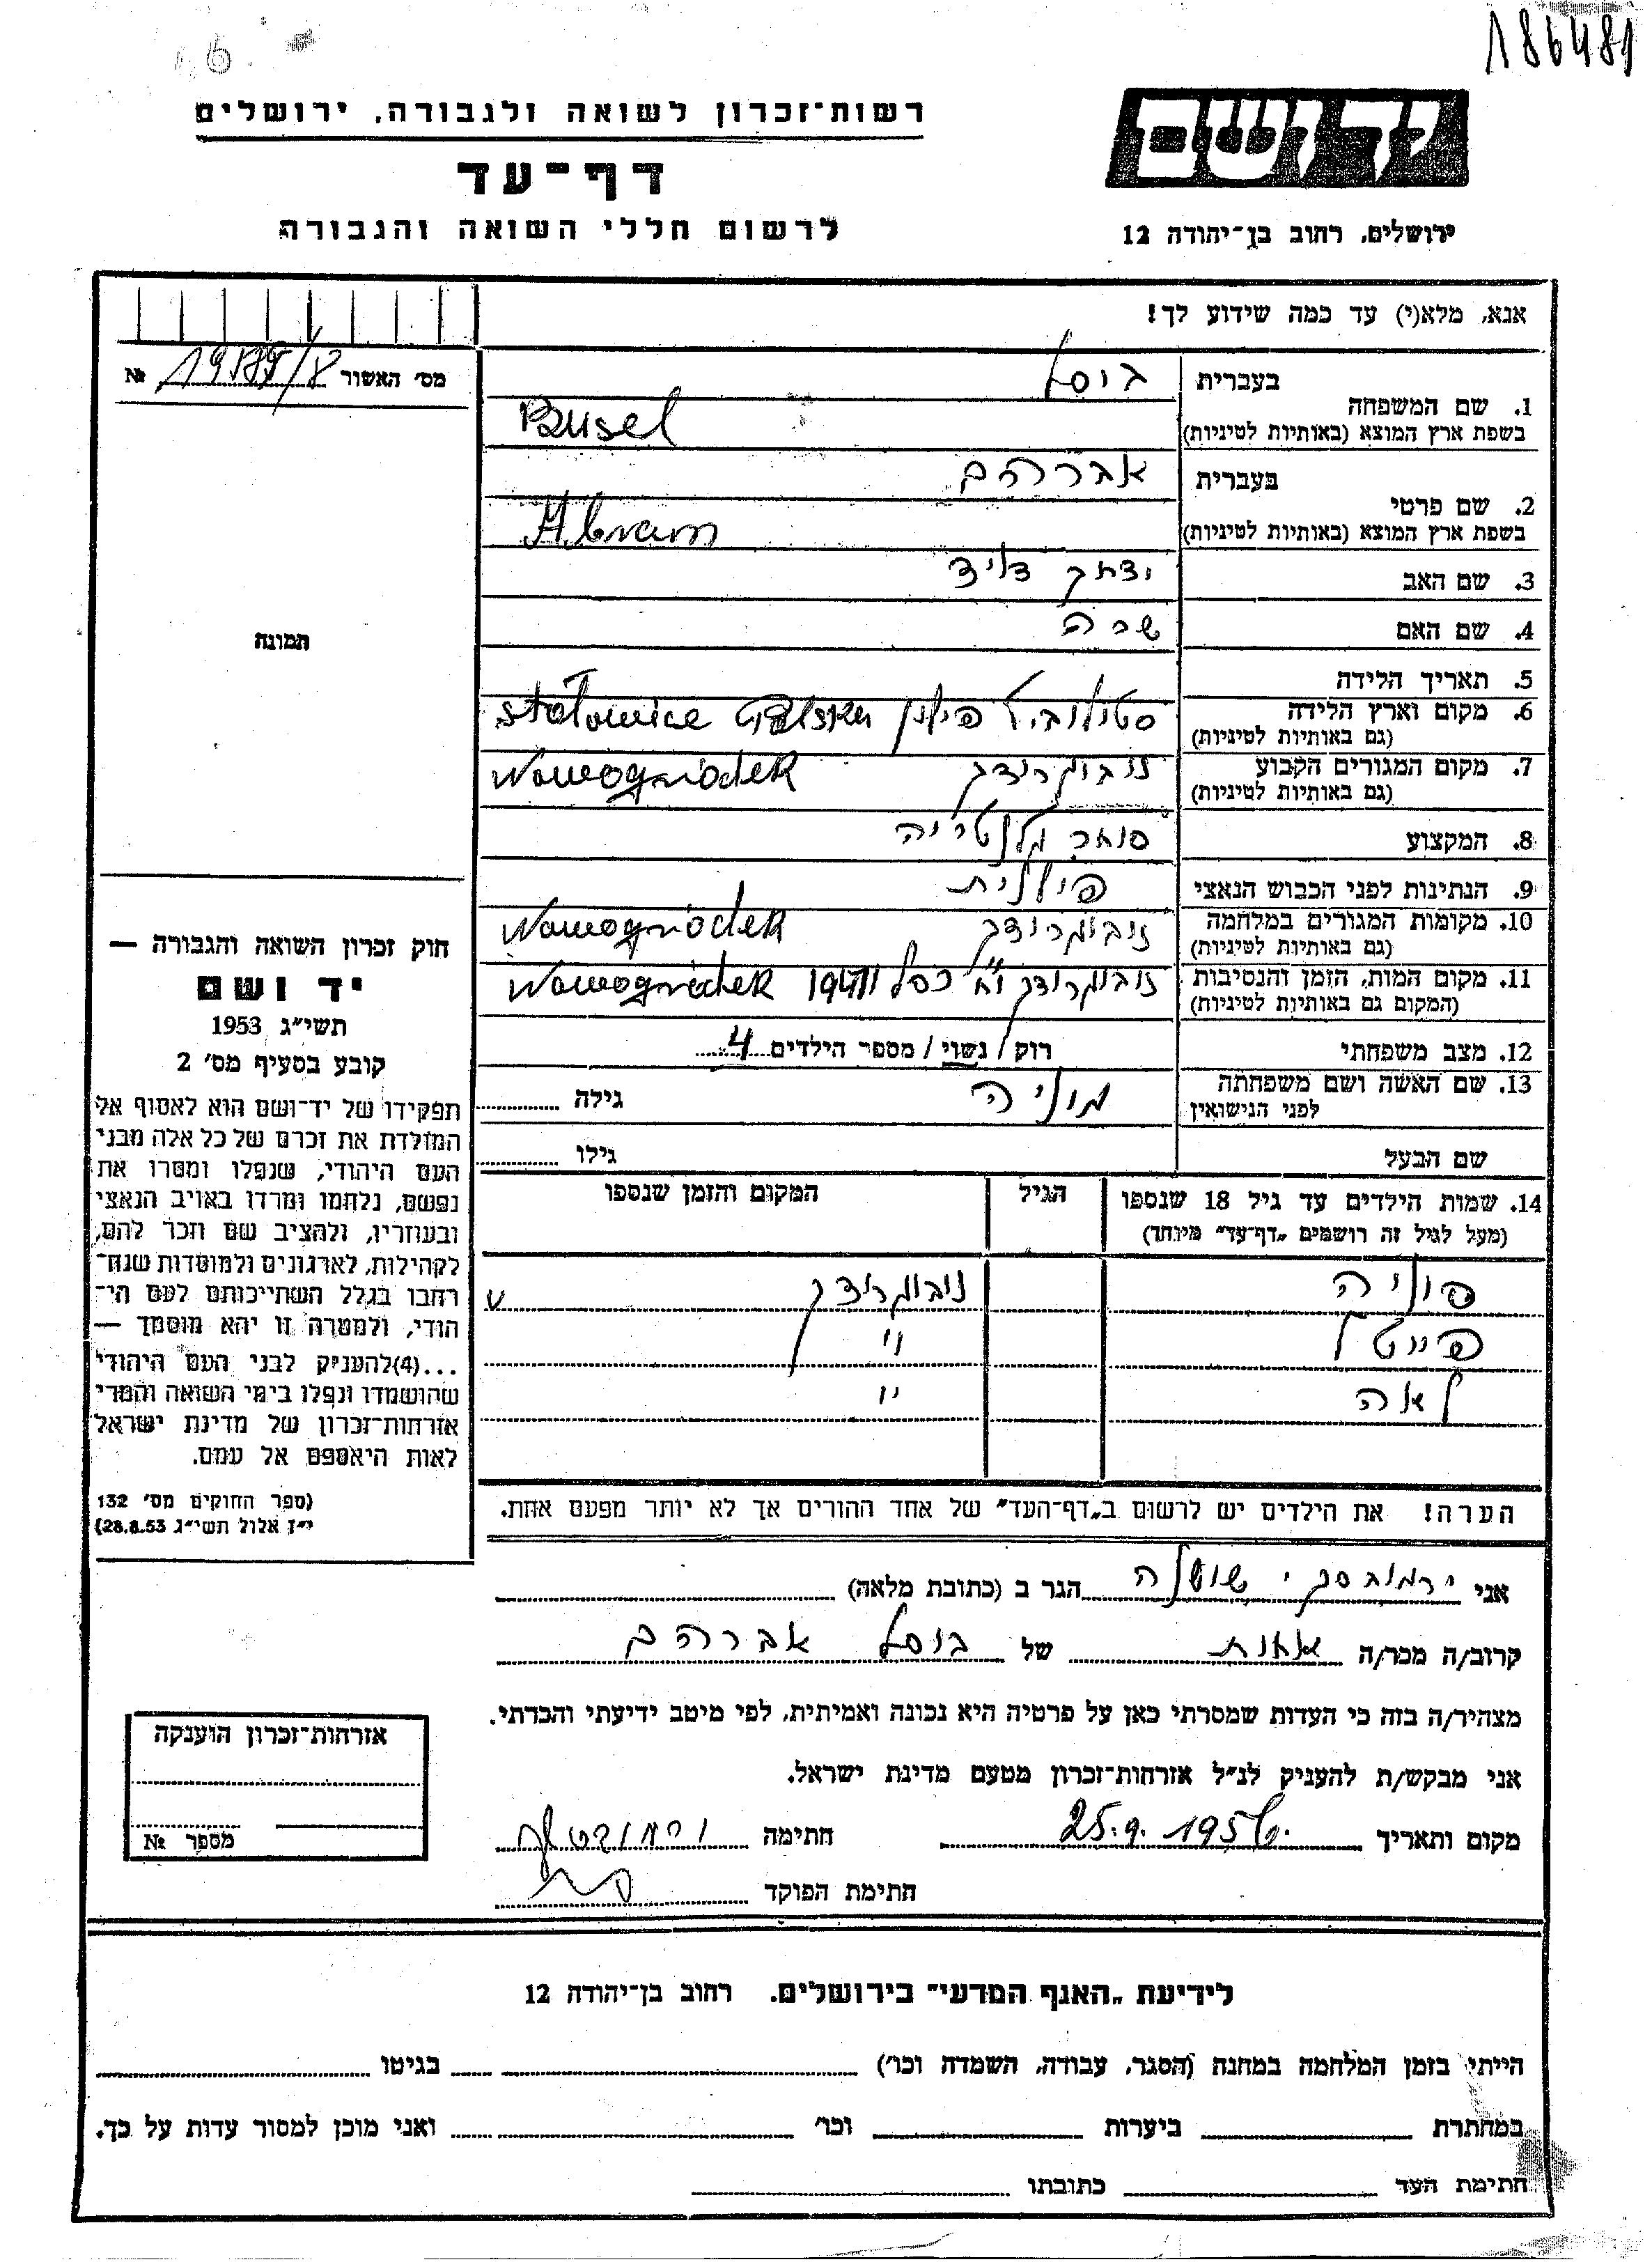 186481
6
רשות־זכרון לשואה ולגבורה, ירושלים
דף־עד
לרשום חללי השואה והגבורה
יד ושם
ירושלים, רחוב בן־יהודה 12
אנא, מלא(י) עד כמה שידוע לך!
מס׳ האשור №
תמונה
1. שם המשפחה
בעברית בוסל
בשפת ארץ המוצא (באותיות לטיניות) Busel
2. שם פרטי
בעברית אברהם
בשפת ארץ המוצא (באותיות לטיניות) Abram
3. שם האב יצחק דויד
4. שם האם שרה
5. תאריך הלידה
6. מקום וארץ הלידה
(גם באותיות לטיניות) פולין Stołowice
7. מקום המגורים הקבוע נובוגרודק Nowogródek
(גם באותיות לטיניות)
8. המקצוע סוחר גלנטריה
9. הנתינות לפני הכבוש הנאצי פולנית
10. מקומות המגורים במלחמה נובוגרודק Nowogródek
(גם באותיות לטיניות)
11. מקום המות, הזמן והנסיבות נובוגרודק Nowogródek
(המקום גם באותיות לטיניות)
12. מצב משפחתי רוק / נשוי / מספר הילדים 4
13. שם האשה ושם משפחתה מוניה גילה
לפני הנישואין
שם הבעל גילו
14. שמות הילדים עד גיל 18 שנספו הגיל המקום והזמן שנספו
(מעל לגיל זה רושמים „דף־עד״ מיוחד)
פוניה נובוגרודק
פייטל
לאה
הערה! את הילדים יש לרשום ב„דף־העד״ של אחד ההורים אך לא יותר מפעם אחת.
חוק זכרון השואה והגבורה —
יד ושם
תשי״ג 1953
קובע בסעיף מס׳ 2
תפקידו של יד־ושם הוא לאסוף אל
המולדת את זכרם של כל אלה מבני
העם היהודי, שנפלו ומסרו את
נפשם, נלחמו ומרדו באויב הנאצי
ובעוזריו, ולהציב שם וזכר להם,
לקהילות, לארגונים ולמוסדות שנח־
רבו בגלל השתייכותם לעם הי־
הודי, ולמטרה זו יהא מוסמך —
...(4) להעניק לבני העם היהודי
שהושמדו ונפלו בימי השואה והמרי
אזרחות־זכרון של מדינת ישראל
לאות היאספם אל עמם.
(ספר החוקים מס׳ 132
י״ז אלול תשי״ג 28.8.53)
אני ירמובסקי שושנה הגר ב (כתובת מלאה)
קרוב/ה מכר/ה אחות של בוסל אברהם
מצהיר/ה בזה כי העדות שמסרתי כאן על פרטיה היא נכונה ואמיתית, לפי מיטב ידיעתי והכרתי.
אני מבקש/ת להעניק לנ״ל אזרחות־זכרון מטעם מדינת ישראל.
מקום ותאריך 25.9.1956 חתימה
חתימת הפוקד
אזרחות־זכרון הוענקה
מספר №
לידיעת „האגף המדעי״ בירושלים. רחוב בן־יהודה 12
הייתי בזמן המלחמה במחנה (הסגר, עבודה, השמדה וכו׳) בגיטו
במחתרת ביערות וכו׳ ואני מוכן למסור עדות על כך.
חתימת העד כתובתו